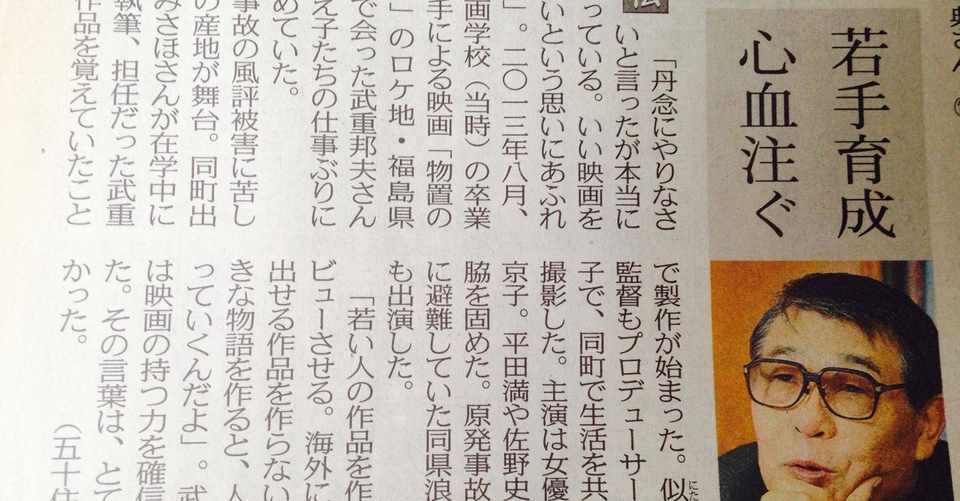 典さん
若手育成
心血注ぐ
伝
「丹念にやりなさ
いと言ったが本当に
っている。いい映画を
いという思いにあふれ
」。二〇一三年八月、
画学校（当時）の卒業
手による映画「物置の
」のロケ地・福島県
で会った武重邦夫さん
え子たちの仕事ぶりに
めていた。
事故の風評被害に苦し
の産地が舞台。同町出
みさほさんが在学中に
執筆、担任だった武重
作品を覚えていたこと
で製作が始まった。似
にた
監督もプロデューサー
子で、同町で生活を共
撮影した。主演は女優
京子。平田満や佐野史
脇を固めた。原発事故
に避難していた同県浪
も出演した。
「若い人の作品を作
ビューさせる。海外に
出せる作品を作らない
きな物語を作ると、人
っていくんだよ」。武
は映画の持つ力を確信
た。その言葉は、とて
かった。
（五十住